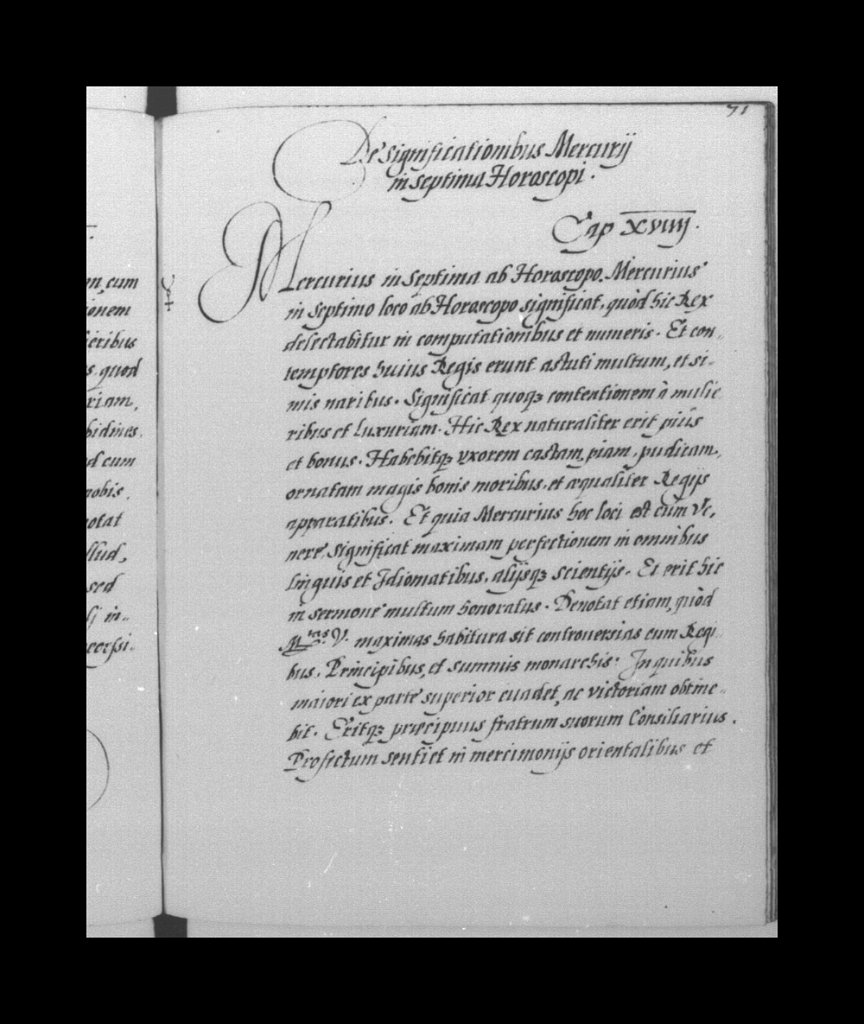 71
De significationibus Mercurij
in septima Horoscopi.
Cap XVIIII.
Mercurius in septima ab Horoscopo. Mercurius
in septimo loco ab Horoscopo significat, quòd hic Rex
delectabitur in computationibus et numeris. Et con-
temptores huius Regis erunt astuti multum, et si-
mis naribus. Significat quoqꝫ contentionem à mulie
ribus et luxuriam. Hic Rex naturaliter erit piús
et bonus. Habebitqꝫ vxorem castam, piam, pudicam,
ornatam magis bonis moribus, et æqualiter Regijs
apparatibus. Et quia Mercurius hoc loci est cum Ve,
nere significat maximam perfectionem in omnibus
linguis et Idiomatibus, alijsqꝫ scientijs. Et erit hic
in sermone multum honoratus. Denotat etiam, quòd
M.tas V. maximas habitura sit controuersias cum Regi
bus, Principibus, et summis monarchis: In quibus
maiori ex parte superior euadet, ac victoriam obtine-
bit. Eritqꝫ præcipuus fratrum suorum Consiliarius.
Profectum sentiet in mercimonijs orientalibus et
m, cum
ionem
ieribus
s, quod
riam,
bidines.
d cum
nobis.
notat
llud,
sed
lj in-